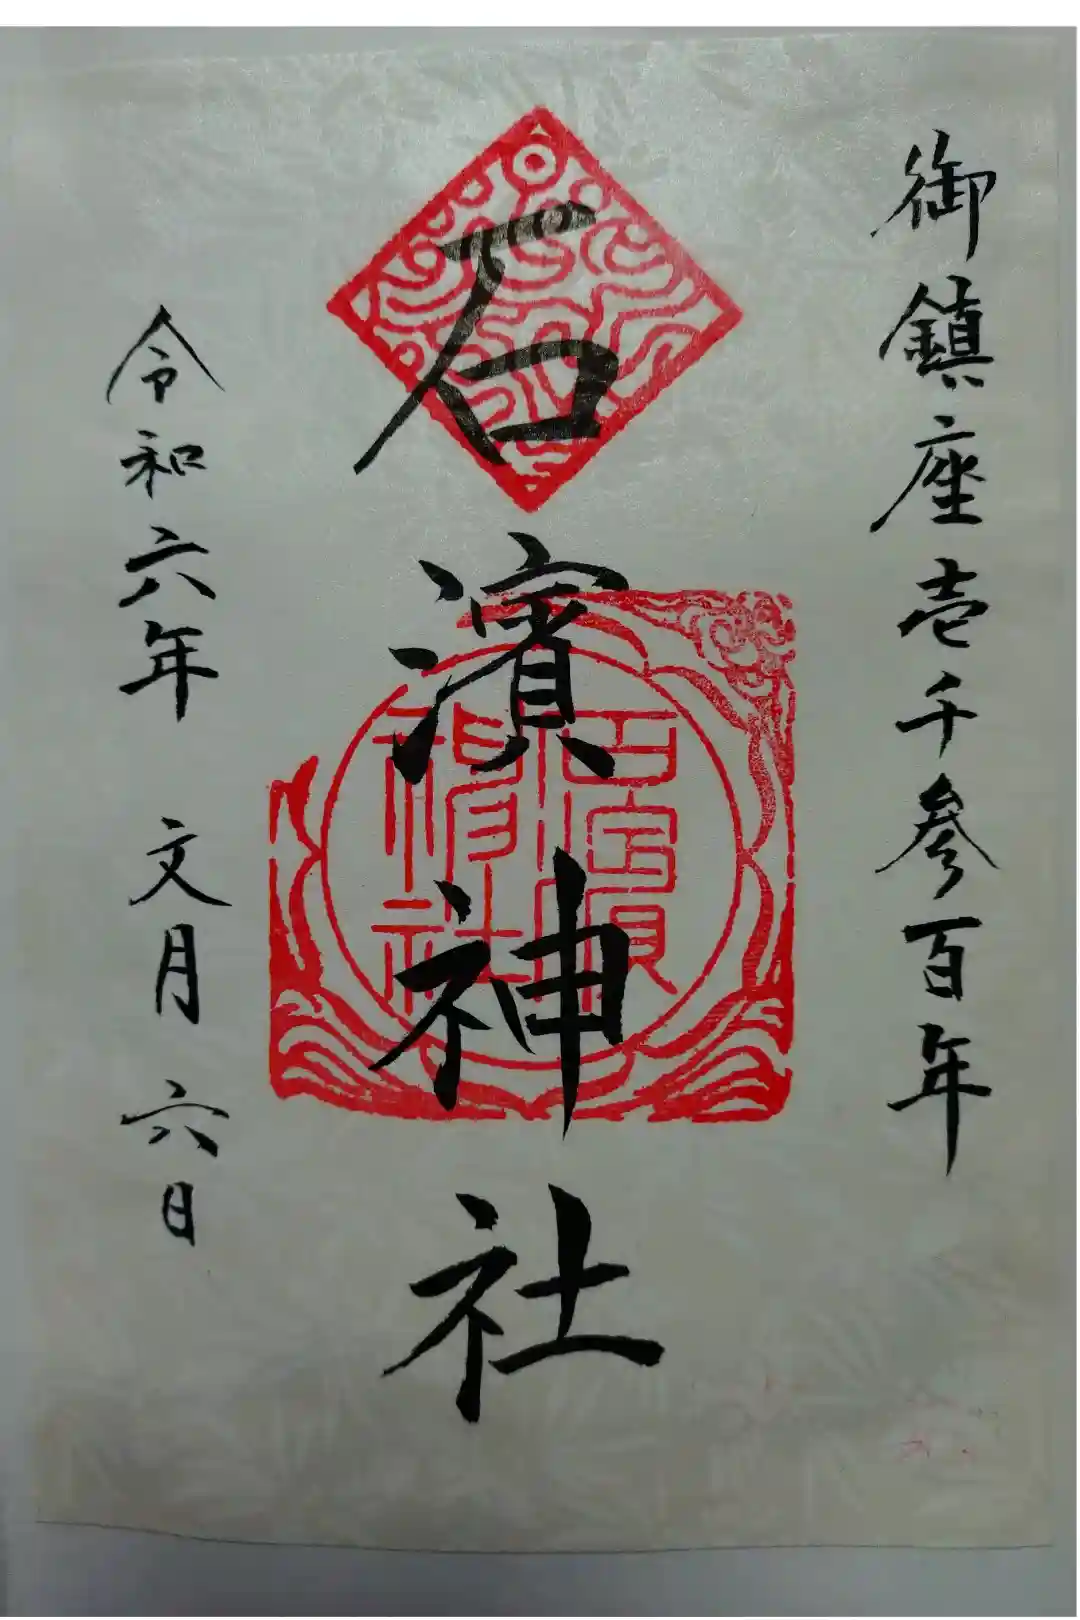 御鎮座壱千参百年
石濱神社
石濱神社
令和六年 文月 六日